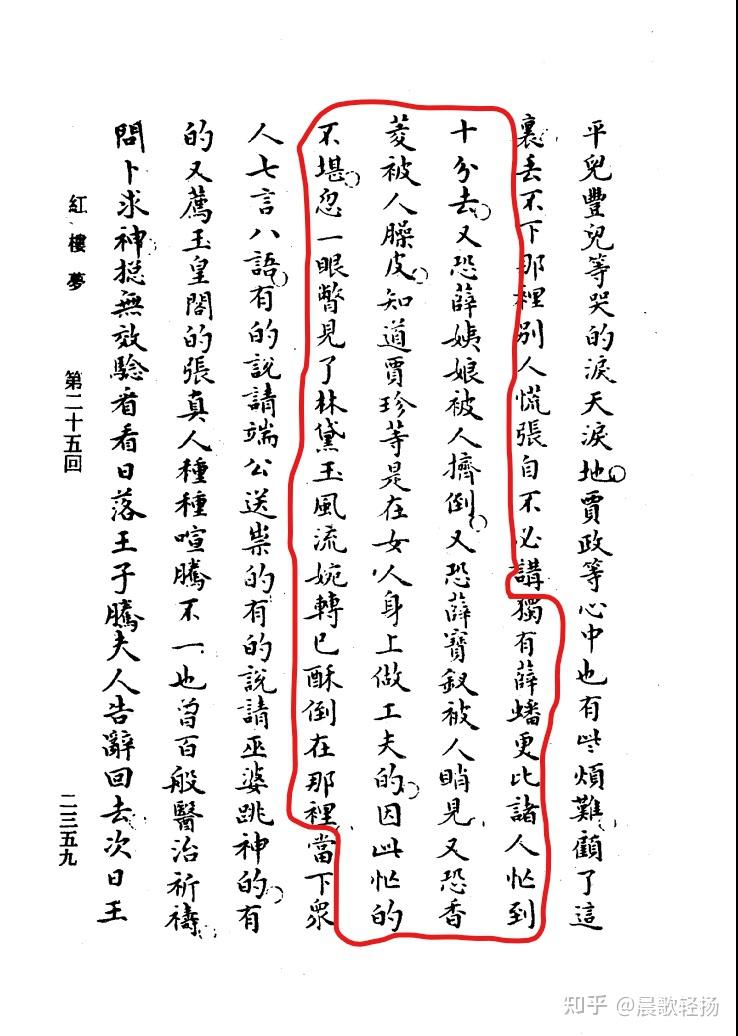 平兒豐兒等哭的淚天淚地賈政等心中也有些煩難顧了這
裏丢不下那裡別人慌張自不必講獨有薛蟠更比諸人忙到
十分去又恐薛姨娘被人擠倒又恐薛寶釵被人睄見又恐香
菱被人臊皮知道賈珍等是在女人身上做工夫的因此忙的
不堪忽一眼瞥見了林黛玉風流婉轉已酥倒在那裡當下衆
人七言八語有的說請端公送祟的有的說請巫婆跳神的有
的又薦玉皇閣的張真人種種喧騰不一也曾百般醫治祈禱
問卜求神揔無效驗看看日落王子騰夫人告辭回去次日王
紅樓夢 第二十五回 二三五九
知乎 @晨歌轻扬